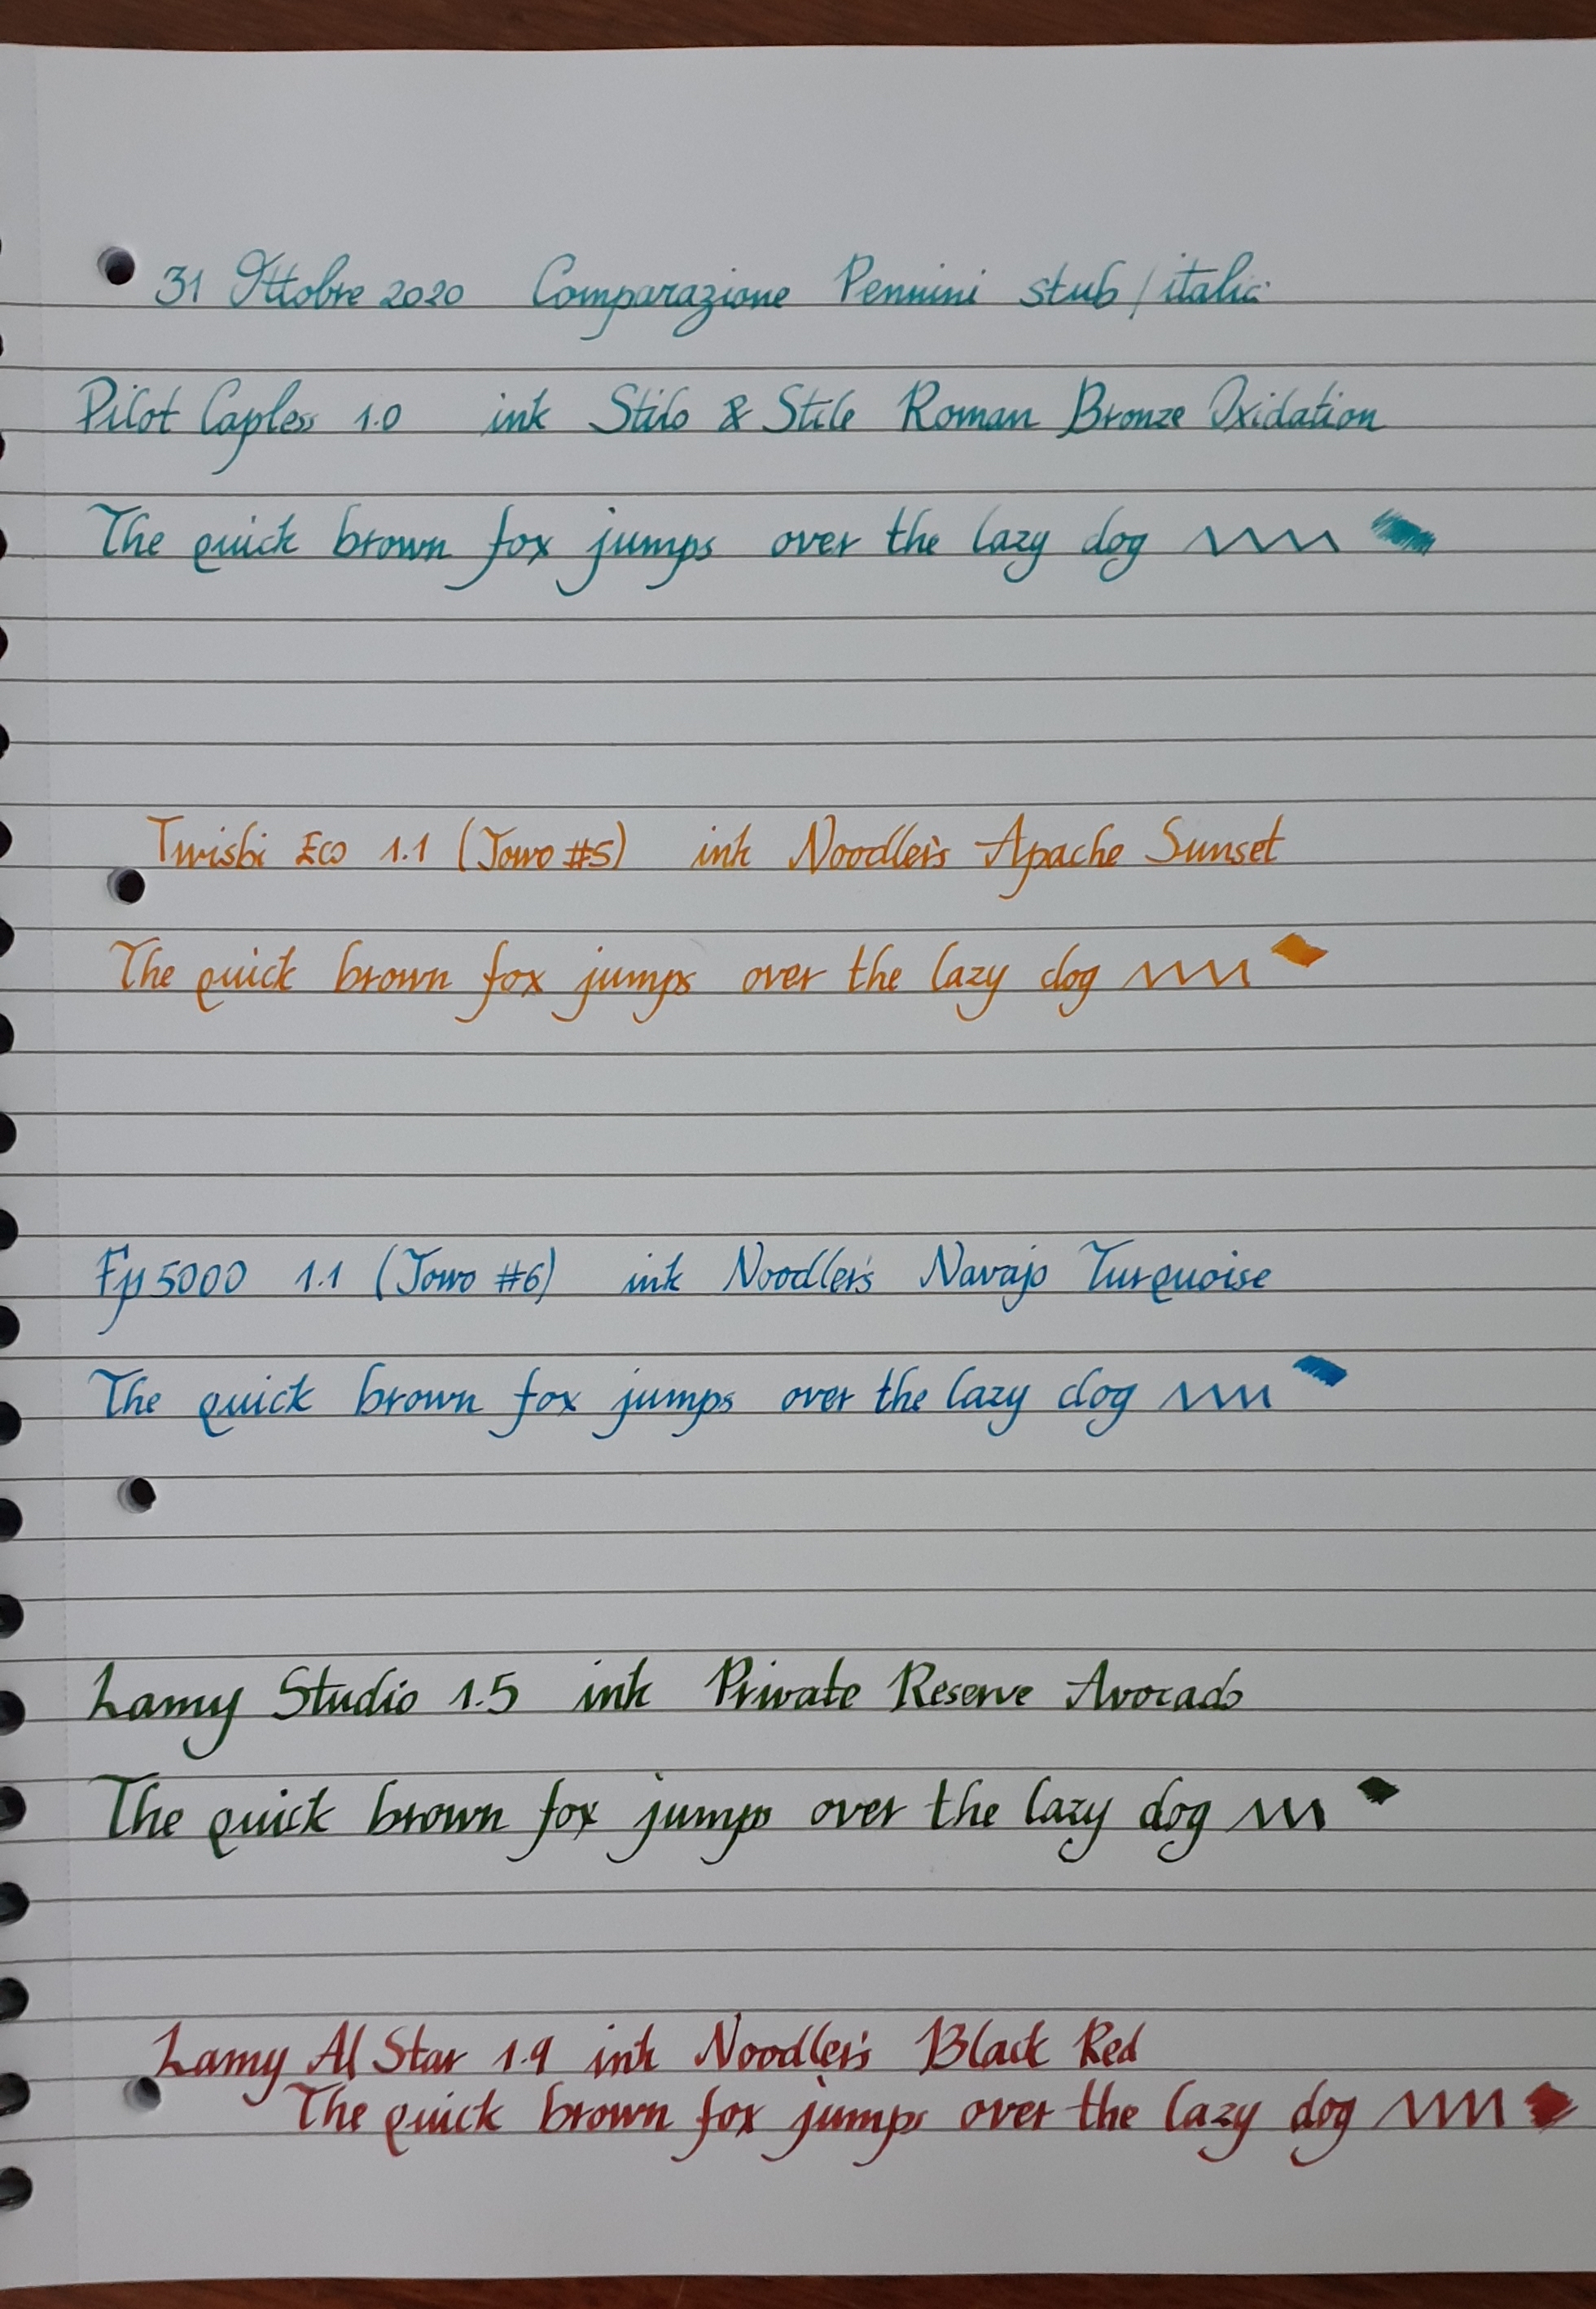 31 Ottobre 2020 Comparazione Pennini stub/italic
Pilot Capless 1.0 ink Stilo & Stile Roman Bronze Oxidation
The quick brown fox jumps over the lazy dog
Twisbi Eco 1.1 (Jowo #5) ink Noodler's Apache Sunset
The quick brown fox jumps over the lazy dog
Fp5000 1.1 (Jowo #6) ink Noodler's Navajo Turquoise
The quick brown fox jumps over the lazy dog
Lamy Studio 1.5 ink Private Reserve Avocado
The quick brown fox jumps over the lazy dog
Lamy Al Star 1.9 ink Noodler's Black Red
The quick brown fox jumps over the lazy dog